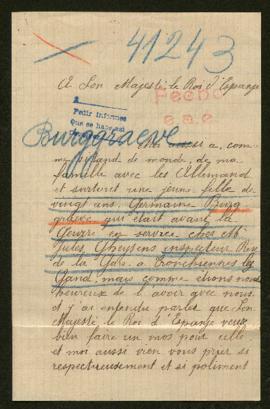 41243
A Son Majesté le Roi d'Espagne
Fecho
Pedir informes
Que se haga
Burggraeve
me
de monde, de ma
famille avec les Allemand
et surtout une jeune fille de
vingt ans, Germaine Burg
graeve qui était avant la
Guerre en service chez Mr
Jules Gheysens inspecteur Rue
de la Gare à Tronchiennes lez
Gand, mais comme étions nous
heureux de l'avoir avec nous,
et j'ai entendu parler que Son
Majesté le Roi d'Espagne veus
bien faire un mos pour elle
et moi aussi vien vous prier si
respectreusement et si poliment